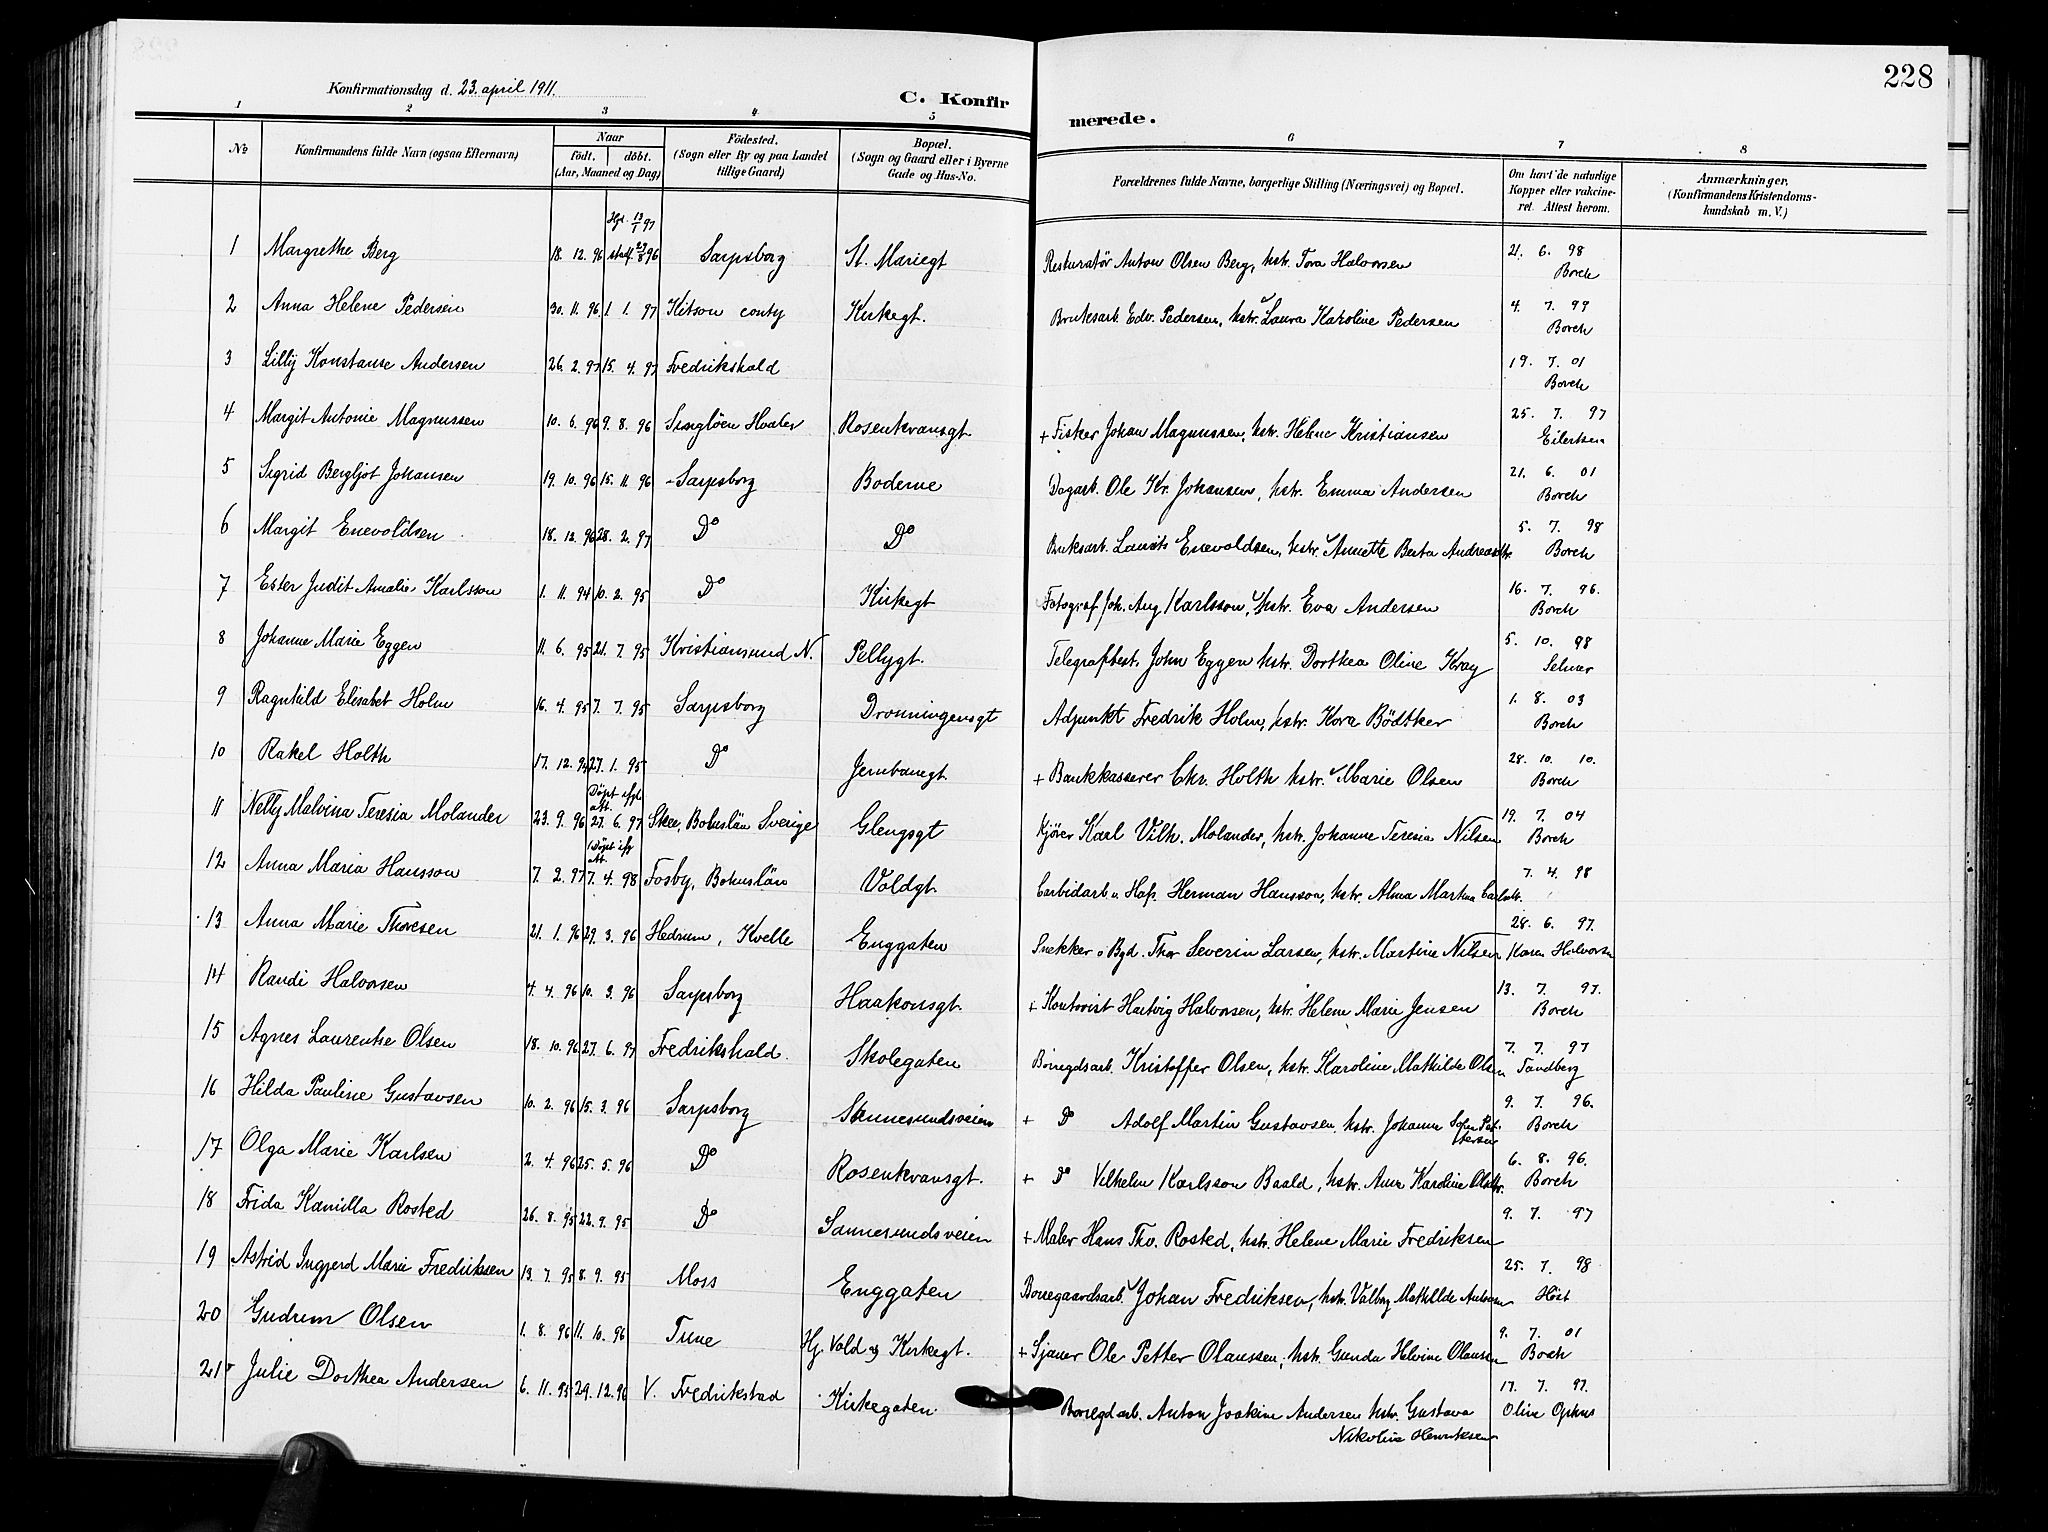 228
Konfirmationsdag d. 23. april 1911.
C. Konfirmerede.
1 2 3 4 5 6 7 8
No
Konfirmandens fulde Navn (ogsaa Efternavn)
Naar
födt. döbt.
(Aar, Maaned og Dag)
Födested.
(Sogn eller By og paa Landet
tillige Gaard)
Bopæl.
(Sogn og Gaard eller i Byerne
Gade og Hus-No.
Forældrenes fulde Navne, borgerlige Stilling (Næringsvei) og Bopæl.
Om havt de naturlige
Kopper eller vakcine-
ret. Attest herom.
Anmærkninger.
(Konfirmandens Kristendoms-
kundskab m. V.)
13/1 97
1 Margrethe Berg 18. 12. 96 Sarpsborg St. Mariegt Resturatör Anton Olsen Berg, hstr. Tora Halvorsen 21. 6. 98 Borch
2 Anna Helene Pedersen 30. 11. 96 1. 1. 97 Kitson conty Kirkegt. Bruksarb. Edv. Pedersen, hstr. Laura Karoline Pedersen 4. 7. 99 Borch
3 Lilly Konstanse Andersen 26. 2. 97 15. 4. 97 Fredrikshald 19. 7. 01 Borch
4 Margit Antonie Magnussen 10. 6. 96 9. 8. 96 Singlöen Hvaler Rosenkransgt + Fisker Johan Magnussen, hstr. Helene Kristiansen 25. 7. 97 Eilertsen
5 Sigrid Bergljot Johansen 19. 10. 96 15. 11. 96 Sarpsborg Boderne Dagarb. Ole Kr. Johansen, hstr. Emma Andersen 21. 6. 01 Borch
6 Margit Enevoldsen 18. 12. 96 28. 2. 97 Do Do Bruksarb. Laurits Enevoldsen, hstr. Annette Berta Andreasdtr. 5. 7. 98 Borch
7 Ester Judit Amalie Karlsson 1. 11. 94 10. 2. 95 Do Kirkegt Fotograf Joh. Aug Karlsson, hstr. Eva Andersen 16. 7. 96. Borch
8 Johanne Marie Eggen 11. 6. 95 21. 7. 95 Kristiansund N. Pellygt. Telegrafbest. John Eggen hstr. Dorthea Oline Krag 5. 10. 98 Selmer
9 Ragnhild Elisabet Holm 16. 4. 95 7. 7. 95 Sarpsborg Dronningensgt Adjunkt Fredrik Holm, hstr. Kora Bödtker 1. 8. 03 Borch
10 Rakel Holth 17. 12. 94 27. 1. 95 Do Jernbanegt + Bankkasserer Chr. Holth hstr. Marie Olsen 28. 10. 10. Borch
Döpt ifgl. att.
11 Nelly Malvina Teresia Molander 23. 9. 96 27. 6. 97 Skee, Bohuslän Sverige Glengsgt Kjörer Karl Vilh. Molander, hstr. Johanne Teresia Nilsen 19. 7. 04 Borch
Döpt ifg att.
12 Anna Maria Hansson 7. 2. 97 7. 4. 98 Fosby, Bohuslän Voldgt. Carbidarb. v. Haf. Herman Hansson, hstr. Alma Martina 7. 4. 98
13 Anna Marie Thoresen 21. 1. 96 29. 3. 96 Hedrum, Kvelle Enggaten Snekker o Bgd. Thor Severin Larsen, hstr. Martine Nilsen 28. 6. 97. Karen Halvorsen
14 Randi Halvorsen 4. 4. 96 10. 3. 96 Sarpsborg Haakonsgt. + Kontorist Hartvig Halvorsen, hstr. Helene Marie Jensen 13. 7. 97. Borch
15 Agnes Laurentse Olsen 18. 10. 96 27. 6. 97 Fredrikshald. Skolegaten Borregdsarb. Kristoffer Olsen, hstr. Karoline Mathilde Olsen 7. 7. 97 Tandberg
16 Hilda Pauline Gustavsen 10. 2. 96 15. 3. 96 Sarpsborg Sannesundsveien + Do Adolf Martin Gustavsen, hstr. Johanne 9. 7. 96. Borch
17 Olga Marie Karlsen 2. 4. 96 25. 5. 96 Do Rosenkransgt. + Do Vilhelm Karlsson Baald, hstr. Anna Karoline Olsdtr. 6. 8. 96. Borch
18 Frida Kamilla Rosted 26. 8. 95 22. 9. 95 Do Sannesundsveien + Maler Hans Thv. Rosted, hstr. Helene Marie Fredriksen 9. 7. 97
19 Astrid Ingjerd Marie Fredriksen 13. 7. 95 8. 9. 95 Moss Enggaten Borregaardsarb. Johan Fredriksen, hstr. Valborg Mathilde 25. 7. 98 Höst
20 Gudrun Olsen 1. 8. 96 11. 10. 96 Tune Hj. Vold og Kirkegt. + Sjauer Ole Petter Olaussen, hstr. Gunda Helvine Olaussen 9. 7. 01 Borch
21 Julie Dorthea Andersen 6. 11. 95 29. 12. 96 V. Fredrikstad Kirkegaten. Borregd arb. Anton Joakim Andersen hstr. Gustava Nikoline Henriksen 17. 7. 97. Oline Ophus